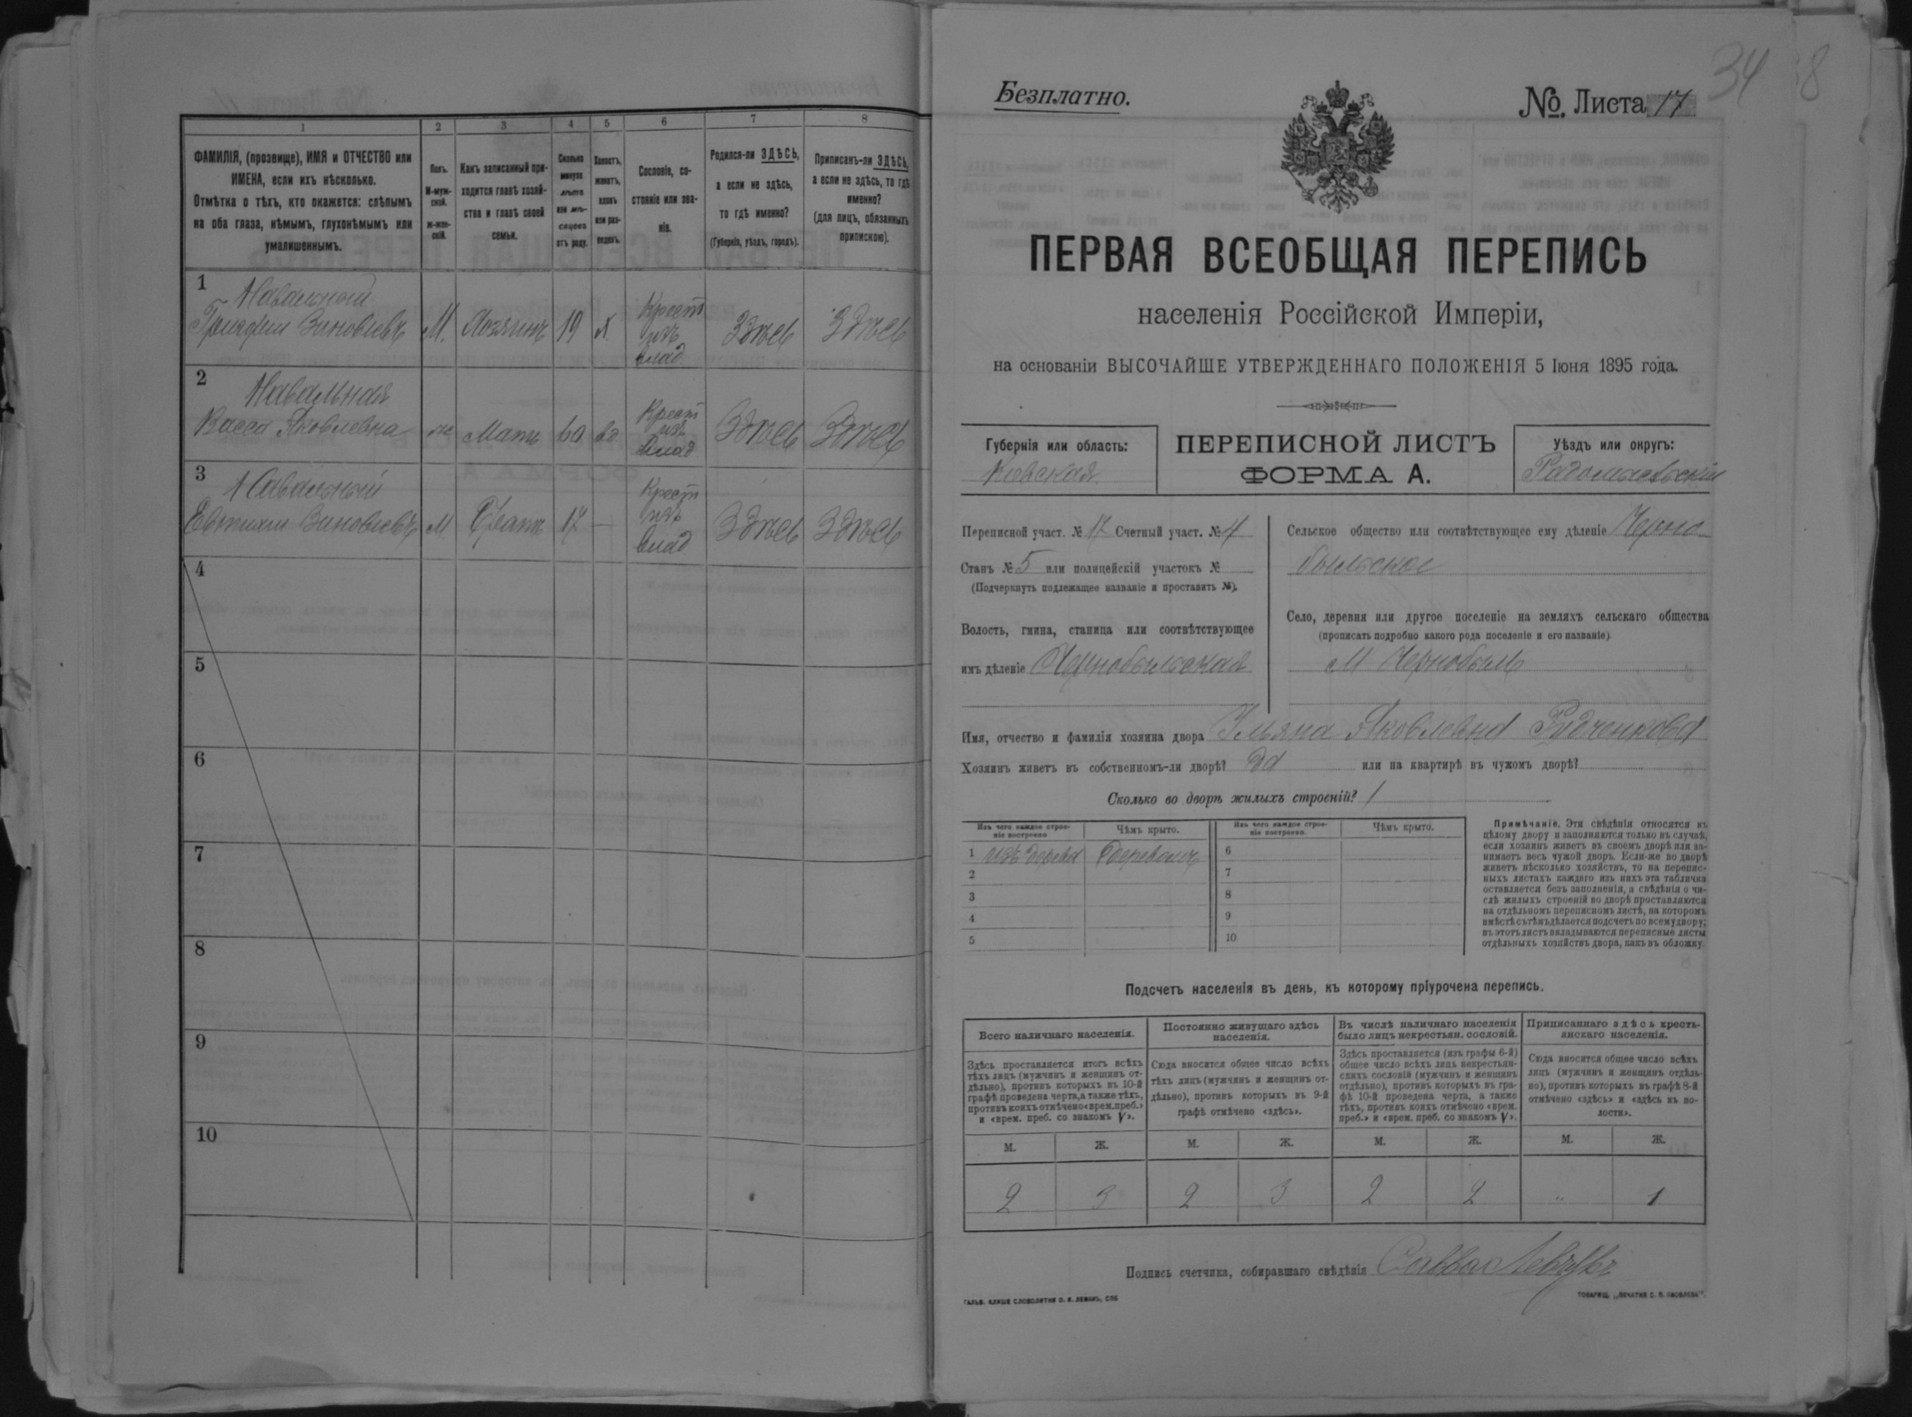 1 2 3 4 5 6 7 8
ФАМИЛІЯ, (прозвище), ИМЯ и ОТЧЕСТВО или
ИМЕНА, если ихъ нѣсколько.
Отмѣтка о тѣхъ, кто окажется: слѣпымъ
на оба глаза, нѣмымъ, глухонѣмымъ или
умалишеннымъ.
Полъ.
М-муж-
ской.
ж-жен-
скій.
Какъ записанный при-
ходится главѣ хозяй-
ства и главѣ своей
семьи.
Сколько
минуло
лѣтъ
или мѣ-
сяцевъ
отъ роду.
Холостъ,
женатъ,
вдовъ
или раз-
веденъ.
Сословіе, со-
стояніе или зва-
ніе.
Родился-ли ЗДѢСЬ,
а если не здѣсь,
то гдѣ именно?
(Губернія, уѣздъ, городъ).
Приписанъ-ли ЗДѢСЬ,
а если не здѣсь, то гдѣ
именно?
(для лицъ, обязанныхъ
припиской).
1
Навальный
Зиновіевъ М. Хозяинъ 19 х Крест изъ влад Здѣсь Здѣсь
2
Навальная
Васса Яковлевна ж Мать 60 вд Крест изъ влад Здѣсь Здѣсь
3
Навальный
Евтихій Зиновіевъ М Братъ 17 — Крест изъ влад Здѣсь Здѣсь
4
5
6
7
8
9
10
34
8
Безплатно.
№. Листа 17
ПЕРВАЯ ВСЕОБЩАЯ ПЕРЕПИСЬ
населенія Россійской Имперіи,
на основаніи ВЫСОЧАЙШЕ УТВЕРЖДЕННАГО ПОЛОЖЕНІЯ 5 Іюня 1895 года.
Губернія или область:
Кіевская
ПЕРЕПИСНОЙ ЛИСТЪ
ФОРМА А.
Уѣздъ или округъ:
Радомысльскій
Переписной участ. № 17 Счетный участ. № 4
Станъ № 5 или полицейскій участокъ №
(Подчеркнуть подлежащее названіе и проставить №).
Волость, гмина, станица или соотвѣтствующее
имъ дѣленіе Чернобыльская
Сельское общество или соотвѣтствующее ему дѣленіе Черно-
быльское
Село, деревня или другое поселеніе на земляхъ сельскаго общества
(прописать подробно какого рода поселеніе и его названіе)
М Чернобыль
Имя, отчество и фамилія хозяина двора Ульяна Яковлевна Рудченкова
Хозяинъ живетъ въ собственномъ-ли дворѣ? да или на квартирѣ въ чужомъ дворѣ?
Сколько во дворѣ жилыхъ строеній? 1
Изъ чего каждое строе-
ніе построено
Чѣмъ крыто.
Изъ чего каждое строе-
ніе построено.
Чѣмъ крыто.
1 изъ дерева Деревомъ
2
3
4
5
6
7
8
9
10
Примѣчаніе. Эти свѣдѣнія относятся къ
цѣлому двору и заполняются только въ случаѣ,
если хозяинъ живетъ въ своемъ дворѣ или за-
нимаетъ весь чужой дворъ. Если-же во дворѣ
живетъ нѣсколько хозяйствъ, то на перепис-
ныхъ листахъ каждаго изъ нихъ эта табличка
оставляется безъ заполненія, а свѣдѣнія о чи-
слѣ жилыхъ строеній во дворѣ проставляются
на отдѣльномъ переписномъ листѣ, на которомъ
вмѣстѣ съ тѣмъ дѣлается подсчетъ по всему двору;
въ этотъ листъ вкладываются переписные листы
отдѣльныхъ хозяйствъ двора, какъ въ обложку.
Подсчетъ населенія въ день, къ которому пріурочена перепись.
Всего наличнаго населенія.
Здѣсь проставляется итогъ всѣхъ
тѣхъ лицъ (мужчинъ и женщинъ от-
дѣльно), противъ которыхъ въ 10-й
графѣ проведена черта, а также тѣхъ,
противъ коихъ отмѣчено «врем. преб.»
и «врем. преб. со знакомъ V».
Постоянно живущаго здѣсь
населенія.
Сюда вносится общее число всѣхъ
тѣхъ лицъ (мужчинъ и женщинъ от-
дѣльно), противъ которыхъ въ 9-й
графѣ отмѣчено «здѣсь».
Въ числѣ наличнаго населенія
было лицъ некрестьян. сословій.
Здѣсь проставляется (изъ графы 6-й)
общее число всѣхъ лицъ некрестьян-
скихъ сословій (мужчинъ и женщинъ
отдѣльно), противъ которыхъ въ гра-
фѣ 10-й проведена черта, а также
тѣхъ, противъ коихъ отмѣчено «врем.
преб.» и «врем. преб. со знакомъ V».
Приписаннаго здѣсь кресть-
янскаго населенія.
Сюда вносится общее число всѣхъ
лицъ (мужчинъ и женщинъ отдѣль-
но), противъ которыхъ въ графѣ 8-й
отмѣчено «здѣсь» и «здѣсь въ во-
лости».
М. Ж. М. Ж. М. Ж. М. Ж.
2 3 2 3 2 2 „ 1
Подпись счетчика, собиравшаго свѣдѣнія Савва Левчукъ
ГАЛЬВ. КЛИШЕ СЛОВОЛИТНИ О. И. ЛЕМАНЪ, СПБ
ТОВАРИЩ. „ПЕЧАТНЯ С. П. ЯКОВЛЕВА“.